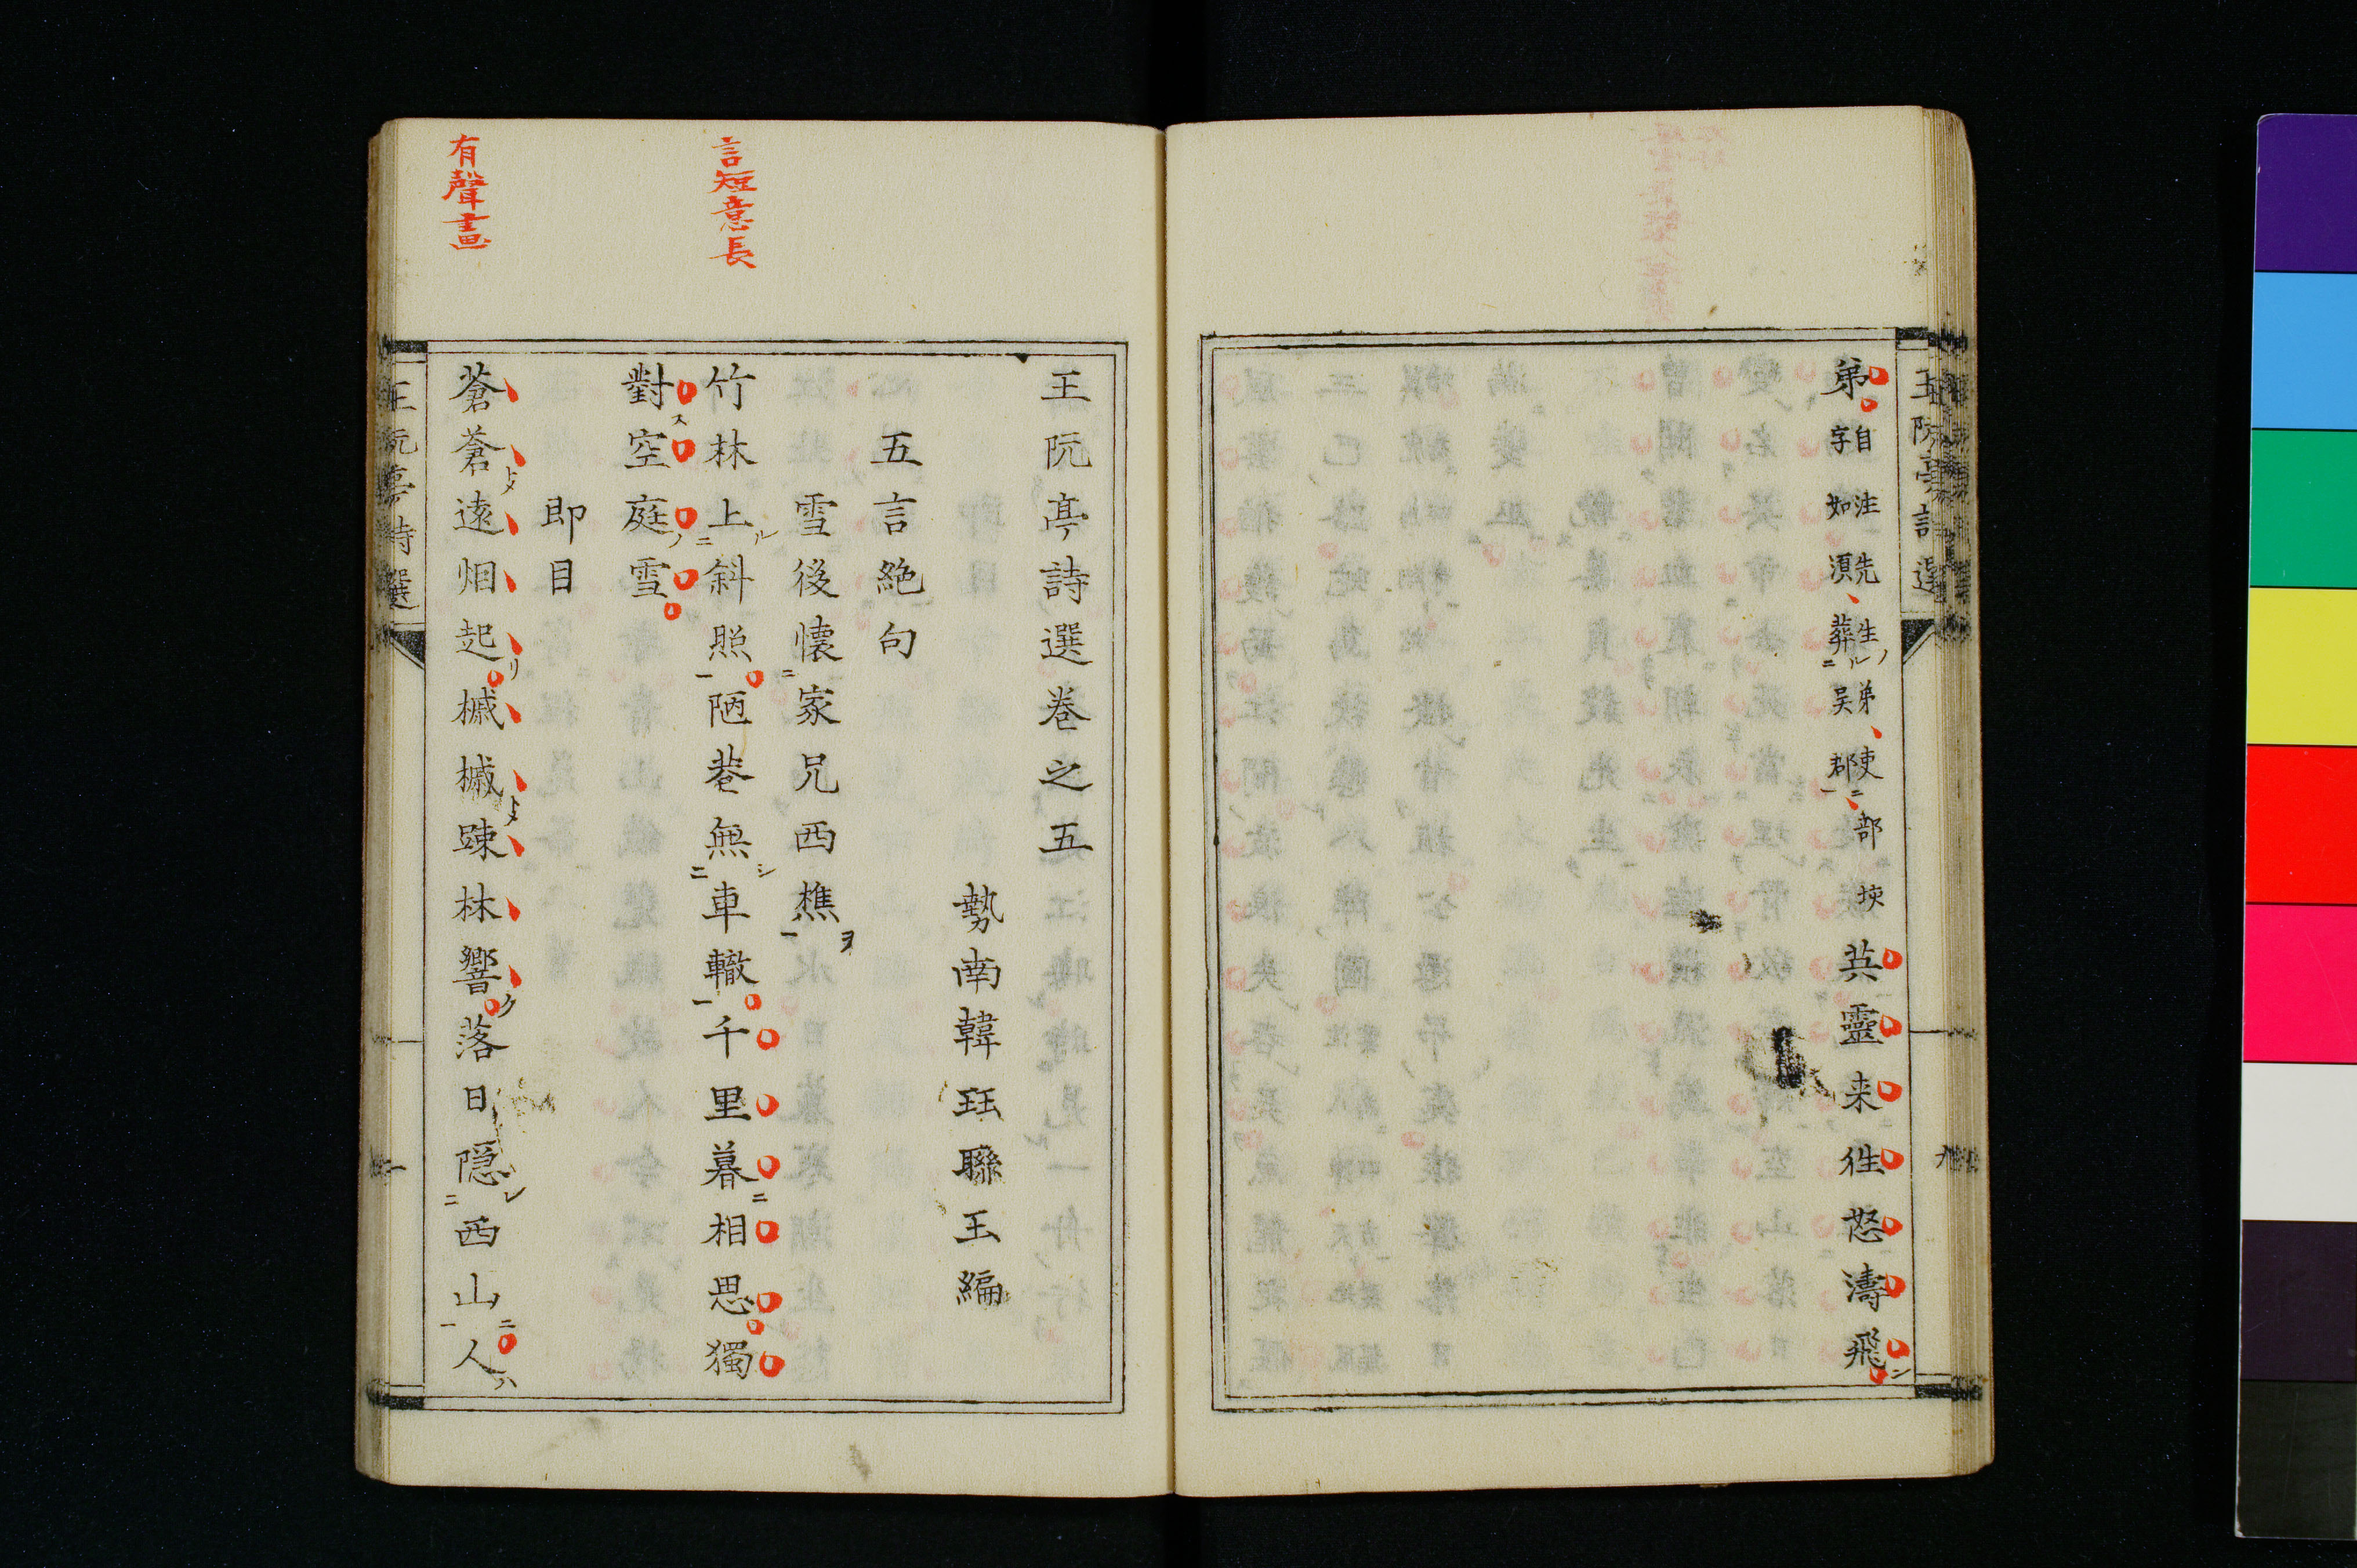 王阮亭詩選
九
弟
自注先生弟吏部垓
字如須葬吳郡
英靈来往怒濤飛
王阮亭詩選卷之五
勢南韓珏聯玉編
五言絶句
雪後懷家兄西樵
言短意長
竹林上斜照陋巷無車轍千里暮相思獨
對空庭雪
即目
有聲畫
蒼蒼遠烟起槭槭踈林響落日隠西山人
王阮亭詩選
一